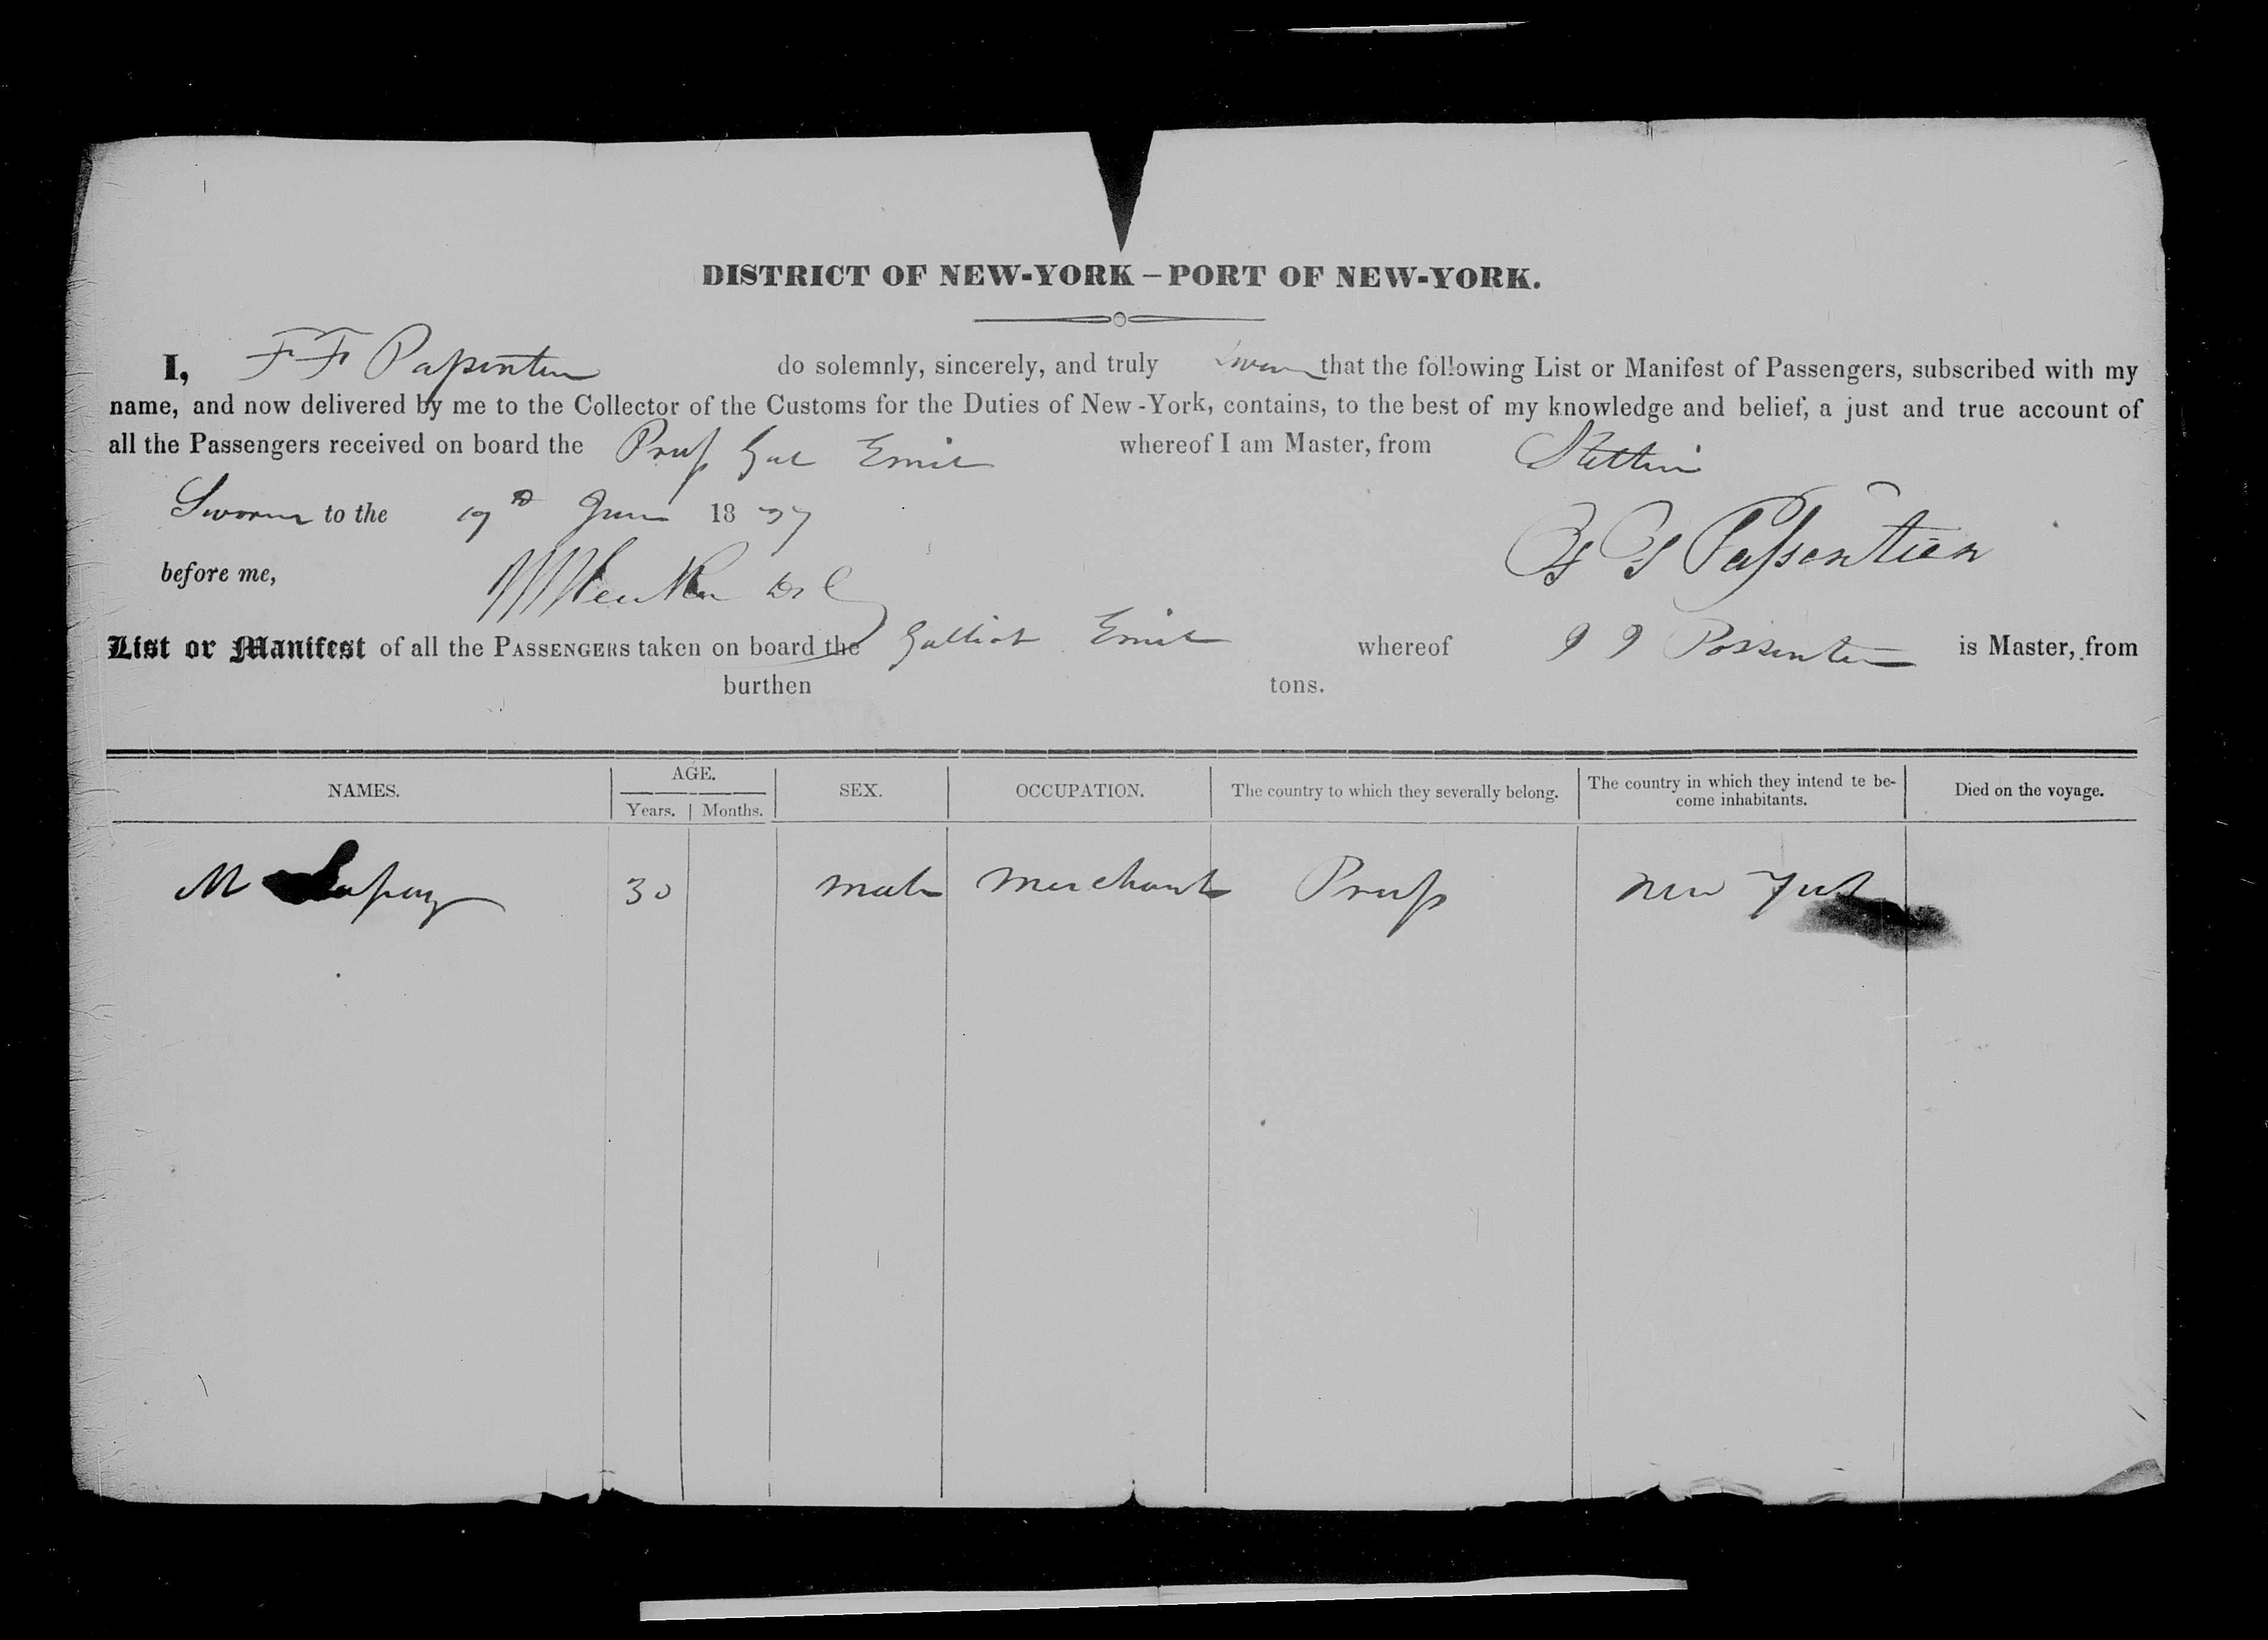 DISTRICT OF NEW-YORK – PORT OF NEW-YORK.
I, F F Passentin do solemnly, sincerely, and truly swear that the following List or Manifest of Passengers, subscribed with my
name, and now delivered by me to the Collector of the Customs for the Duties of New-York, contains, to the best of my knowledge and belief, a just and true account of
all the Passengers received on board the Pruss Gal Emil whereof I am Master, from Stettin
Sworn to the 19th June 1837
before me,
Passentien
List or Manifest of all the PASSENGERS taken on board the Galliot Emil whereof Possentin is Master, from
burthen tons.
NAMES. AGE. SEX. OCCUPATION. The country to which they severally belong. The country in which they intend te be-
come inhabitants. Died on the voyage.
Years. Months.
M 30 male merchant Pruss New York